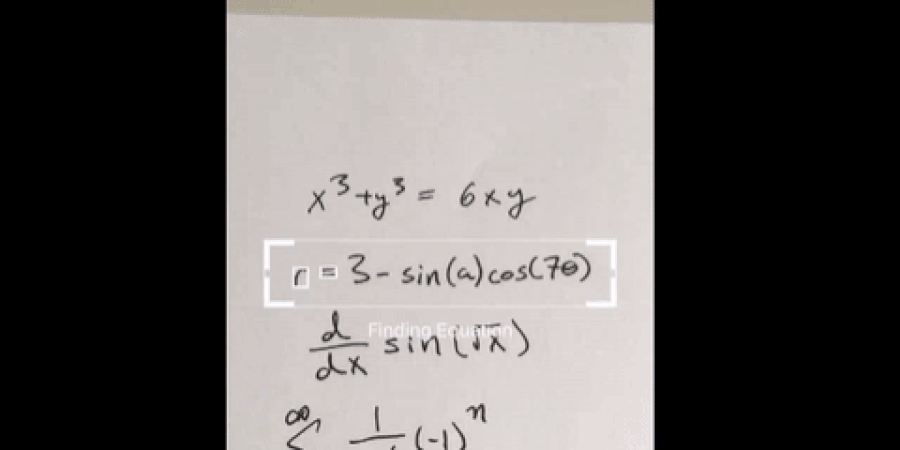 x³+y³ = 6xy
r = 3 - sin(a)cos(7θ)
Finding Equation
d/dx sin(√x)
∞
1 (-1)ⁿ